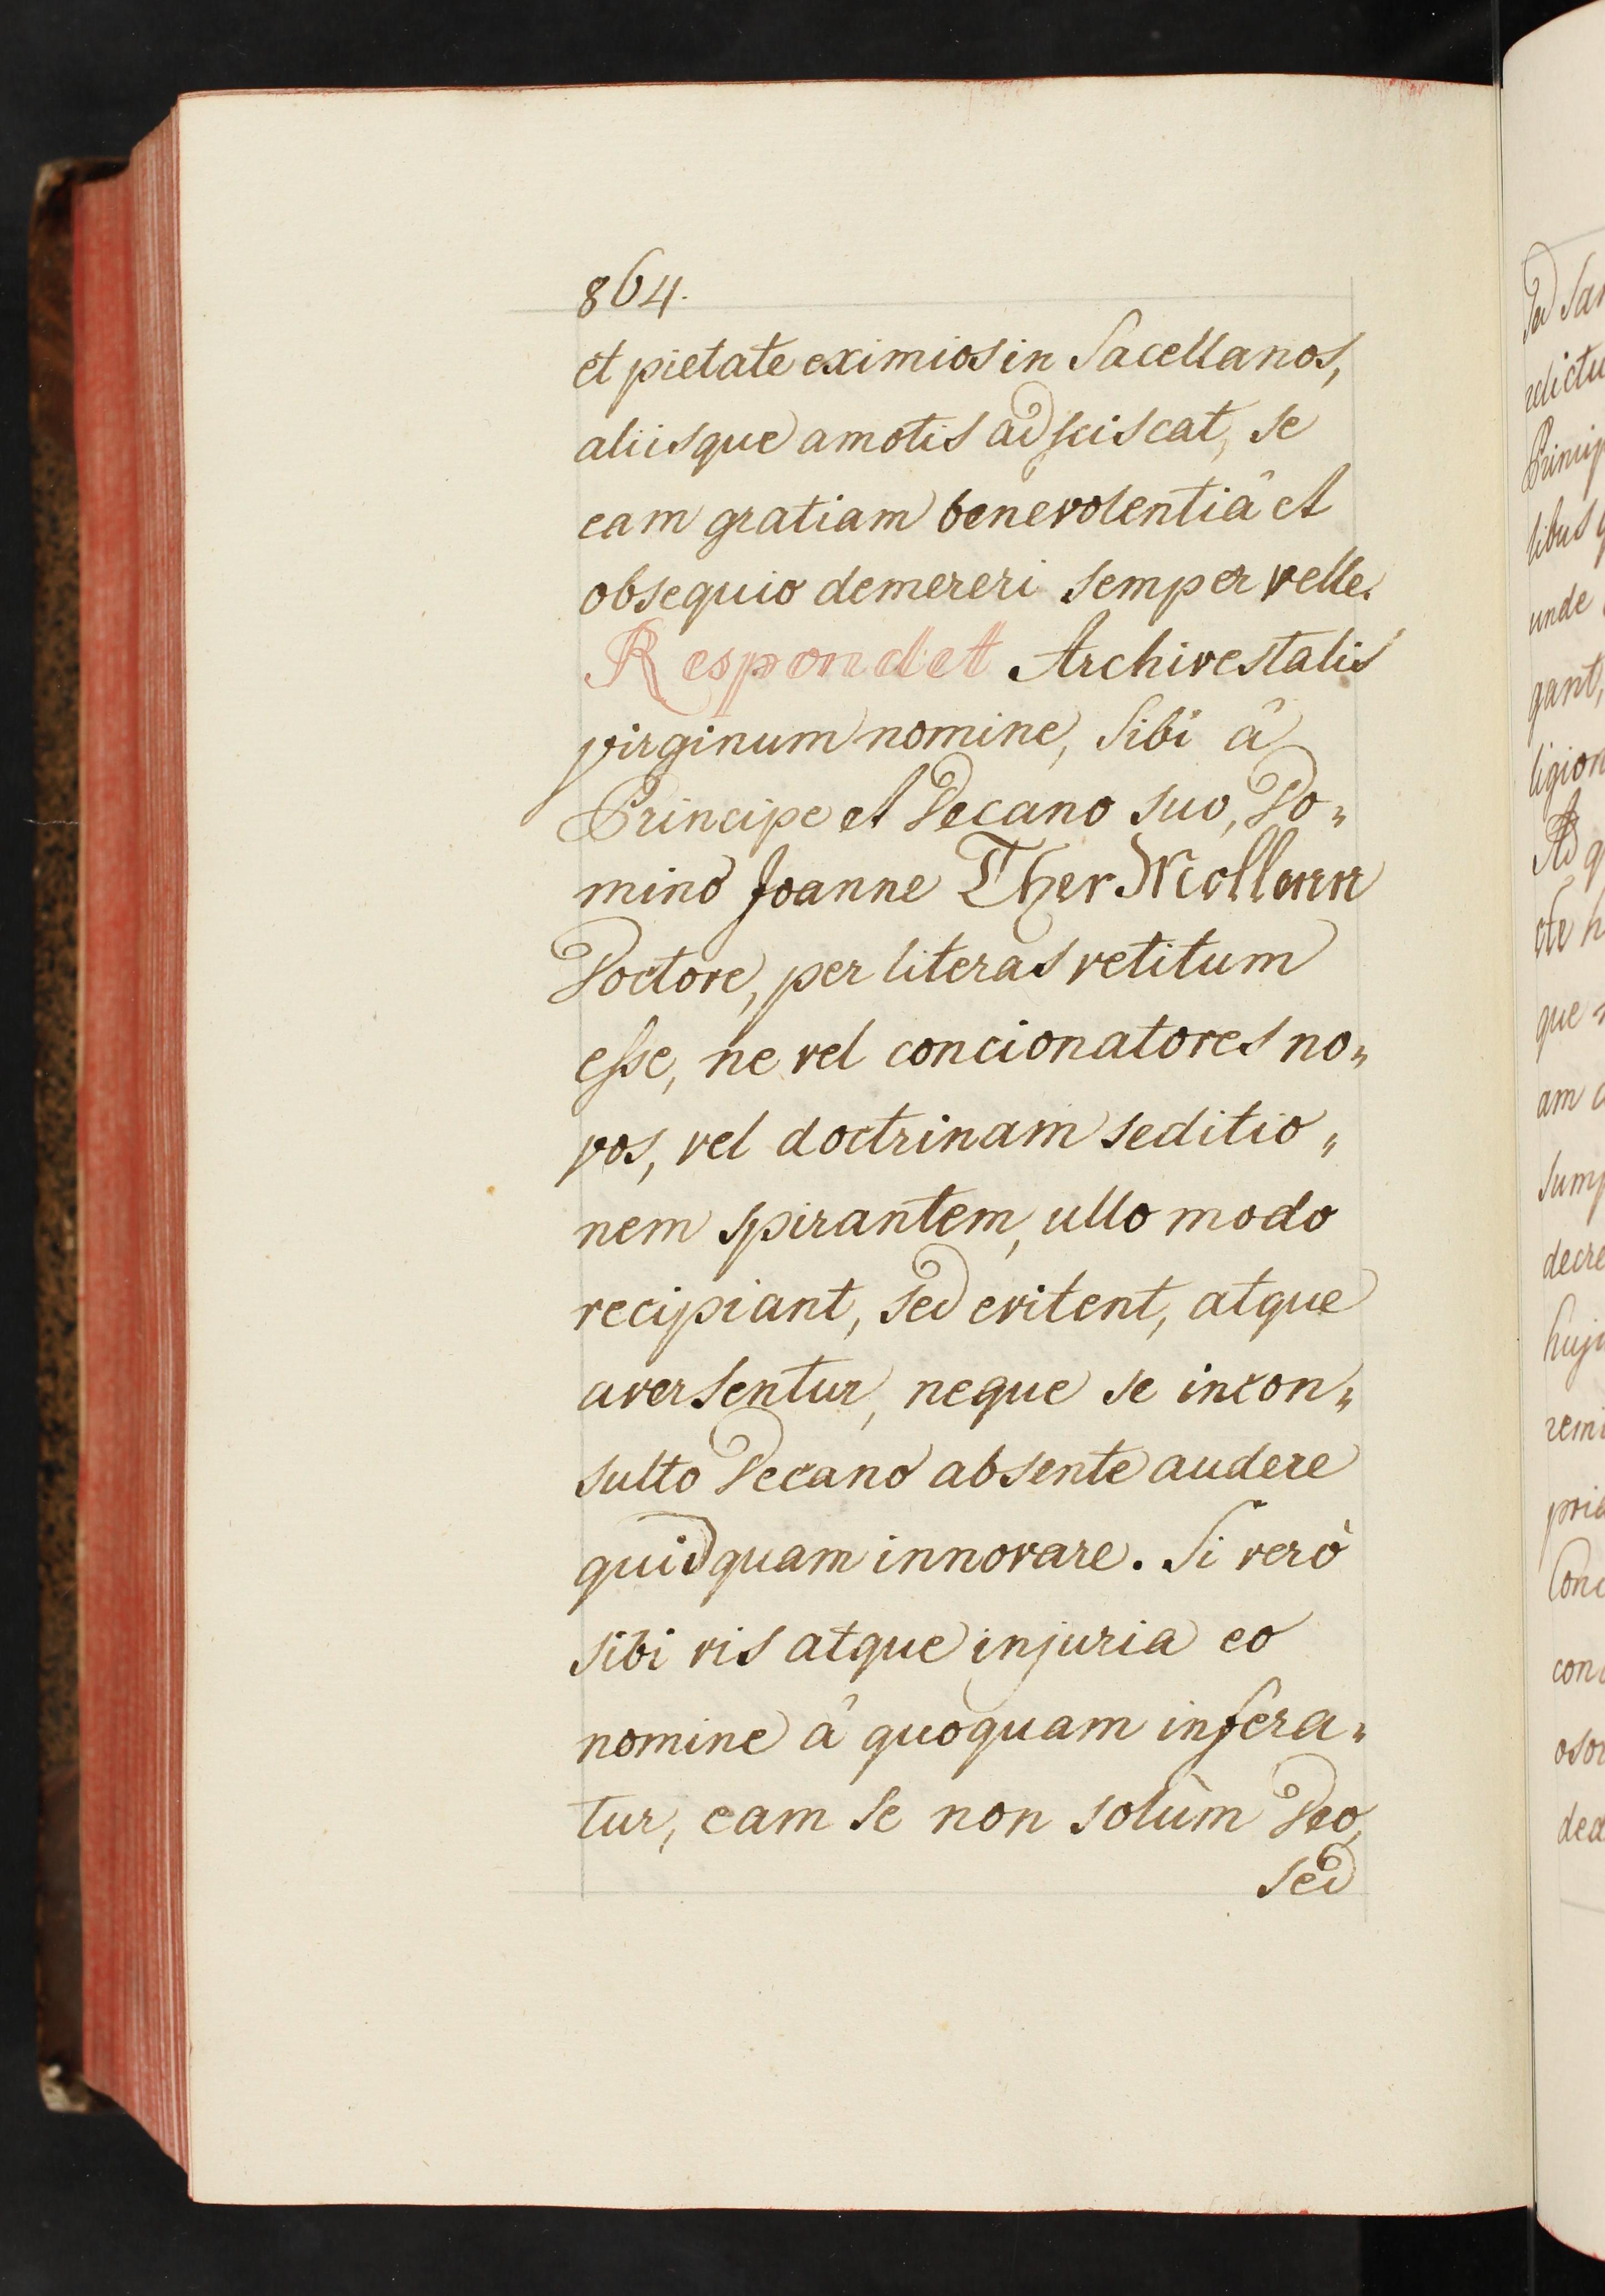 864.
et pietate eximios in Sacellanos,
aliisque amotis adsciscat, se
eam gratiam benevolentiâ et
obsequio demereri semper velle.
Respondet Archivestalis
virginum nomine, sibi â
Principe et Decano suo, Do„
mino Joanne Ther Mollenn
Doctore, per literas vetitum
esse, ne vel concionatores no„
vos, vel doctrinam seditio„
nem spirantem, ullo modo
recipiant, sed evitent, atque
aversentur, neque se incon„
sulto Decano absente audere
quidquam innovare. Si verò
sibi vis atque injuria eo
nomine â quoquam infera„
tur, eam se non solùm Deo,
sed